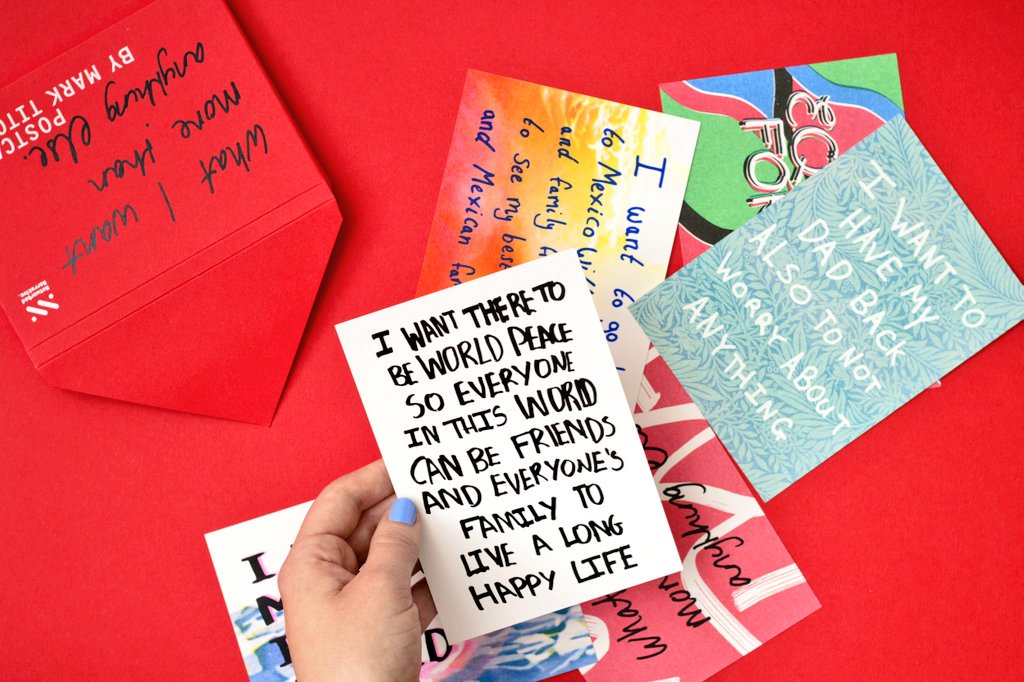 What I want
more than
anything else.
POSTCA
BY MARK TITC
I want
to Mexico Wi
and family t
to see my best
and Mexican fam
to go
I WANT TO
HAVE MY
DAD BACK
ALSO TO NOT
WORRY ABOUT
ANYTHING
I WANT THERE TO
BE WORLD PEACE
SO EVERYONE
IN THIS WORLD
CAN BE FRIENDS
AND EVERYONE'S
FAMILY TO
LIVE A LONG
HAPPY LIFE
What
mor
anything
I